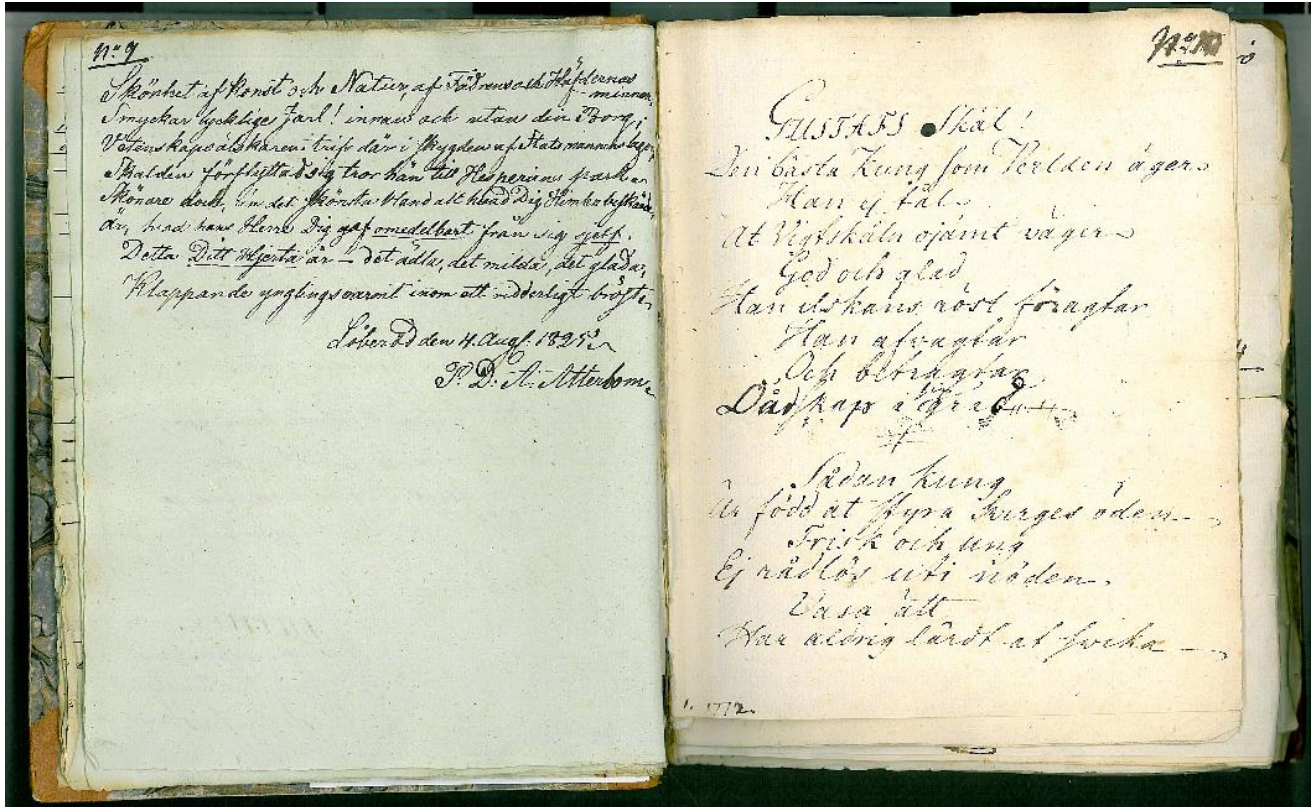 No 9
Skönhet af Konst och Natur, af Fädrens och Häfdernas
minnen,
Smyckar lycklige Jarl! innan och utan din Borg;
Vetenskapsälskaren trifs där i skygden af Statsmannens lager,
Skalden förflyttad sig tror hän till Hesperiens park.
Skönare dock, än det skönsta bland allt hvad Dig Himlen beskärde,
är, hvad hans Herre Dig gaf omedelbart från sig sjelf.
Detta Ditt Hjerta är – det ädla, det milda, det glada,
Klappande ynglingsvarmt inom ett ridderligt bröst.
Löberöd den 4. Aug. 1825.
P. D. A. Atterbom.
No 10
GUSTAFS Skål!
Den bästa Kung som Verlden äger
Han ej tål
At Vigtskåln ojämt väger
God och glad
Han ilskans röst föragtar
Han afvagtar
Och betragtar
Dårskap i
Sådan Kung
Är född at styra Sverges öden
Frisk och ung
Ej rådlös uti nöden.
Vasa ätt
Har aldrig lärdt at svika
1772.